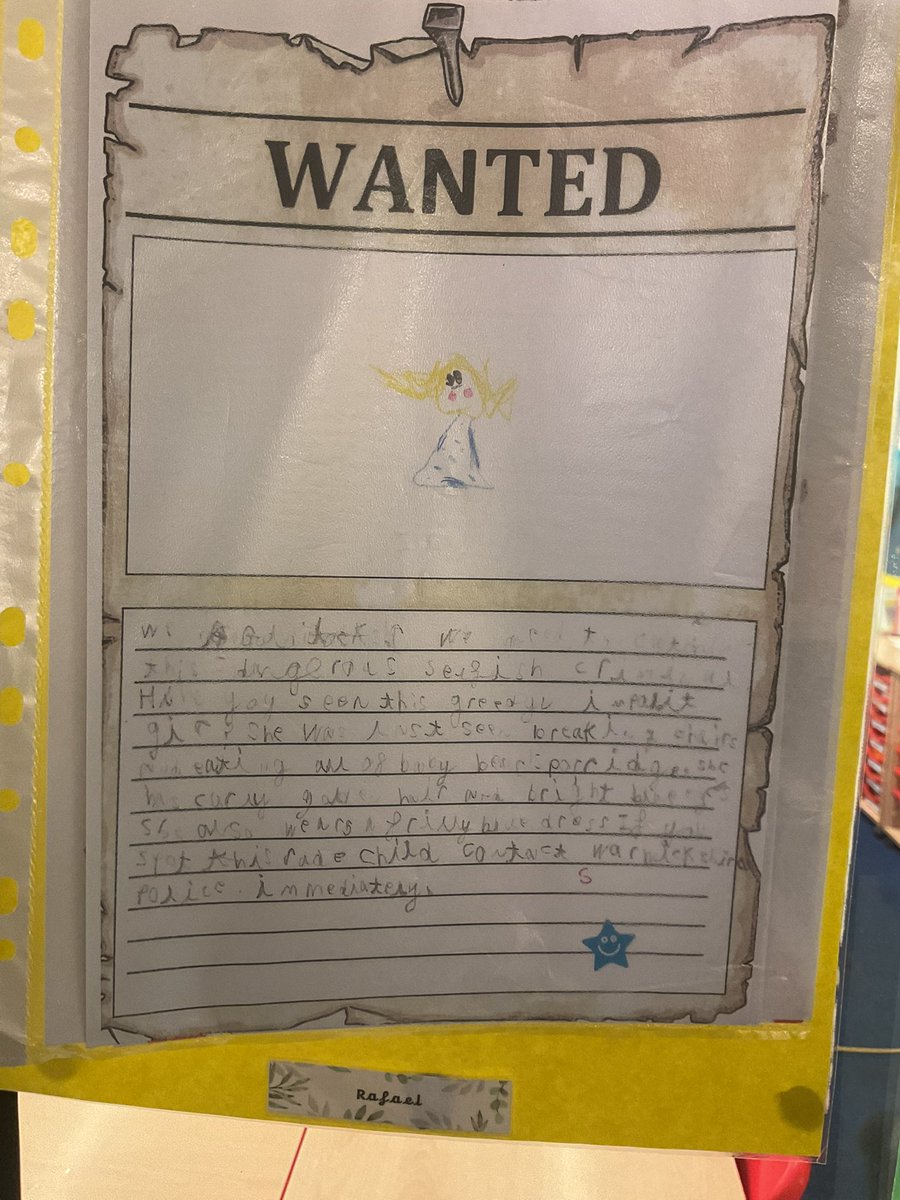 WANTED
Goldilocks We need to catch
this dangerous selfish criminal
Have you seen this greedy impolit
girl? She was last seen breaking chairs
and eating all of baby bear porridge. she
has curly golden hair and bright
She also wears a frilly blue dress If you
spot this rude child contact warwickshire
police immediately.
S
Rafael